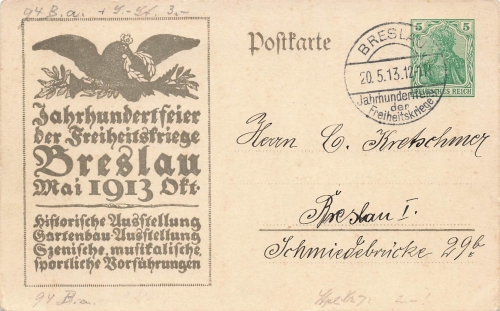 94 B.a.
3.-
Jahrhundertfeier
der Freiheitskriege
Breslau
Mai 1913 Okt.
Historische Ausstellung
Gartenbau-Ausstellung
Szenische, musikalische,
sportliche Vorführungen
94 B.a.
Postkarte
BRESLAU
20.5.13.12-1N
Jahrhundertfeier
der
Freiheitskriege
5 5
DEUTSCHES REICH
Herrn C. Kretschmer
Breslau I.
Schmiedebrücke 29b